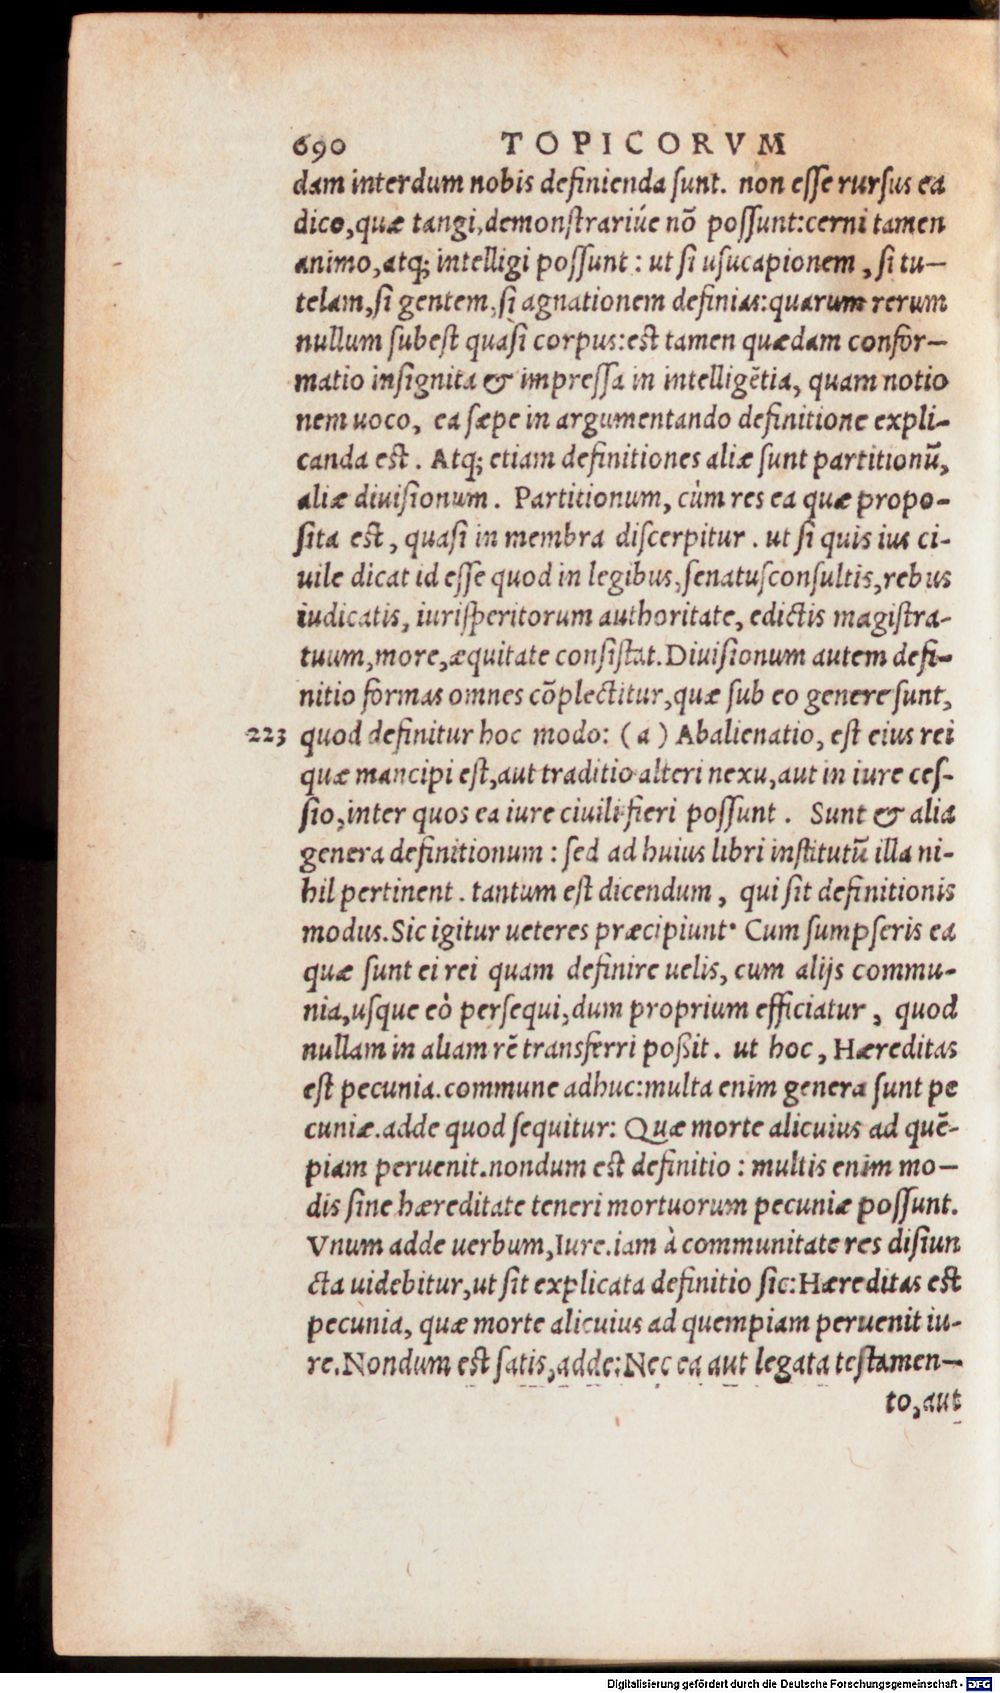 690 TOPICORVM
dam interdum nobis definienda sunt. non esse rursus ea
dico,quæ tangi,demonstrariúe nō possunt:cerni tamen
animo,atq; intelligi possunt: ut si usucapionem, si tu-
telam,si gentem,si agnationem definias:quarum rerum
nullum subest quasi corpus:est tamen quædam confor-
matio insignita & impressa in intelligētia, quam notio
nem uoco, ea sæpe in argumentando definitione expli-
canda est. Atq; etiam definitiones aliæ sunt partitionū,
aliæ diuisionum. Partitionum, cùm res ea quæ propo-
sita est, quasi in membra discerpitur. ut si quis ius ci-
uile dicat id esse quod in legibus,senatusconsultis,rebus
iudicatis, iurisperitorum authoritate, edictis magistra-
tuum,more,æquitate consistat.Diuisionum autem defi-
nitio formas omnes cōplectitur,quæ sub eo genere sunt,
223 quod definitur hoc modo: (a) Abalienatio, est eius rei
quæ mancipi est,aut traditio alteri nexu,aut in iure ces-
sio,inter quos ea iure ciuili fieri possunt. Sunt & alia
genera definitionum: sed ad huius libri institutū illa ni-
hil pertinent. tantum est dicendum, qui sit definitionis
modus.Sic igitur ueteres præcipiunt. Cum sumpseris ea
quæ sunt ei rei quam definire uelis, cum alijs commu-
nia,usque eò persequi,dum proprium efficiatur, quod
nullam in aliam rē transferri poßit. ut hoc, Hæreditas
est pecunia.commune adhuc:multa enim genera sunt pe
cuniæ.adde quod sequitur: Quæ morte alicuius ad quē-
piam peruenit.nondum est definitio: multis enim mo-
dis sine hæreditate teneri mortuorum pecuniæ possunt.
Vnum adde uerbum,Iure.iam à communitate res disiun
cta uidebitur,ut sit explicata definitio sic:Hæreditas est
pecunia, quæ morte alicuius ad quempiam peruenit iu-
re.Nondum est satis,adde:Nec ea aut legata testamen-
to,aut
Digitalisierung gefördert durch die Deutsche Forschungsgemeinschaft - DFG